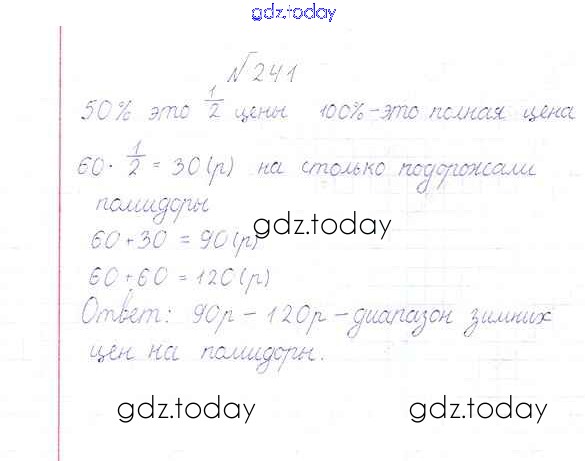 gdz.today
№241
50% это 1/2 цены 100%-это полная цена
60 · 1/2 = 30(р) на столько подорожали
помидоры
gdz.today
60+30 = 90(р)
60+60 = 120(р)
Ответ: 90р - 120р - диапазон зимних
цен на помидоры.
gdz.today gdz.today